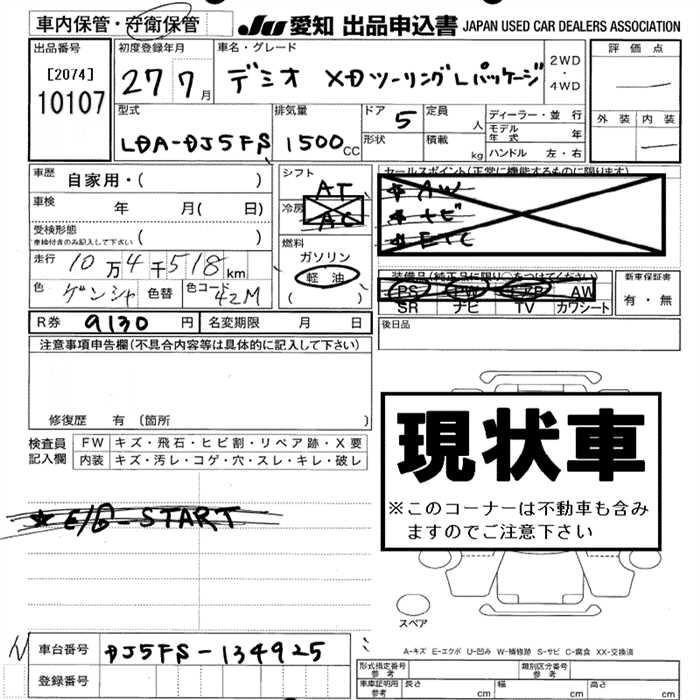 車内保管・守衛保管
JU 愛知 出品申込書 JAPAN USED CAR DEALERS ASSOCIATION
出品番号
[2074]
10107
初度登録年月
27 7月
車名・グレード
デミオ XDツーリングLパッケージ
2WD
・
4WD
評価点
外装 内装
型式
LDA-DJ5FS
排気量
1500cc
ドア 5
形状
定員 人
積載 kg
ディーラー・並行
モデル年式 年
ハンドル 左・右
車歴 自家用・( )
車検 年 月( 日)
受検形態
車検付きのみ記入して下さい ( )
走行 10万4千518km
色 ゲンシャ 色替 色コード 42M
シフト AT
冷房 AC
燃料
ガソリン
軽油
( )
セールスポイント(正常に機能するものに限ります)
★AW
★ナビ
★ETC
装備品(純正品に限り○をつけてください)
PS PW エアB AW
SR ナビ TV カワシート
新車保証書
有・無
後日品
R券 9130円 名変期限 月 日
注意事項申告欄(不具合内容等は具体的に記入して下さい)
修復歴 有 (箇所 )
検査員記入欄
FW キズ・飛石・ヒビ割・リペア跡・X要
内装 キズ・汚レ・コゲ・穴・スレ・キレ・破レ
★E/G-START
現状車
※このコーナーは不動車も含み
ますのでご注意下さい
スペア
A-キズ E-エクボ U-凹み W-補修跡 S-サビ C-腐食 XX-交換済
車台番号 DJ5FS-134925
登録番号
型式指定番号 参考
類別区分番号 参考
車庫証明用 参考 長さ cm 幅 cm 高さ cm